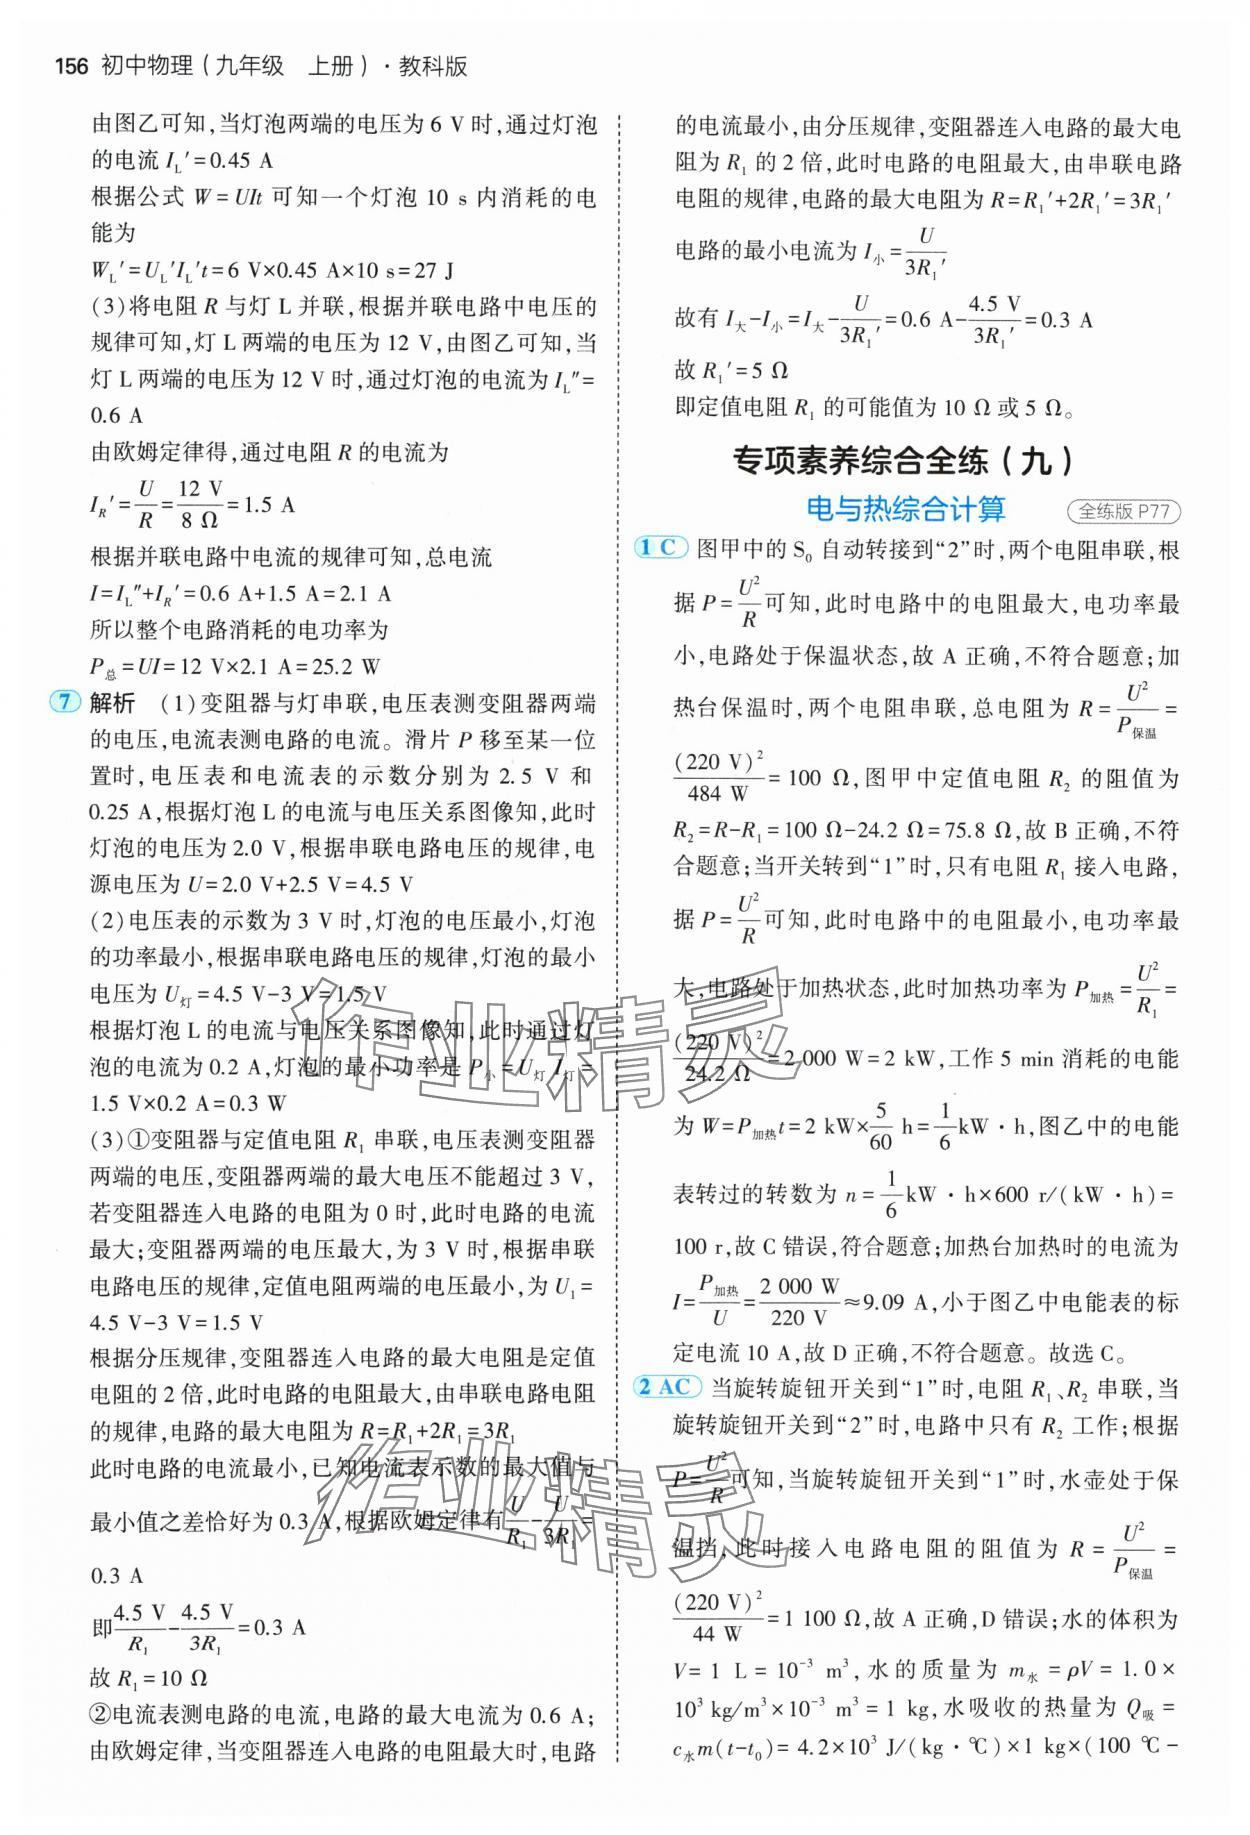 156 初中物理(九年级 上册)·教科版
由图乙可知,当灯泡两端的电压为 6 V 时,通过灯泡
的电流 I_L′=0.45 A
根据公式 W=UIt 可知一个灯泡 10 s 内消耗的电
能为
W_L′=U_L′I_L′t=6 V×0.45 A×10 s=27 J
(3)将电阻 R 与灯 L 并联,根据并联电路中电压的
规律可知,灯 L 两端的电压为 12 V,由图乙可知,当
灯 L 两端的电压为 12 V 时,通过灯泡的电流为 I_L″=
0.6 A
由欧姆定律得,通过电阻 R 的电流为
I_R′=U/R=12 V/8 Ω=1.5 A
根据并联电路中电流的规律可知,总电流
I=I_L″+I_R′=0.6 A+1.5 A=2.1 A
所以整个电路消耗的电功率为
P_总=UI=12 V×2.1 A=25.2 W
7 解析 (1)变阻器与灯串联,电压表测变阻器两端
的电压,电流表测电路的电流。滑片 P 移至某一位
置时,电压表和电流表的示数分别为 2.5 V 和
0.25 A,根据灯泡 L 的电流与电压关系图像知,此时
灯泡的电压为 2.0 V,根据串联电路电压的规律,电
源电压为 U=2.0 V+2.5 V=4.5 V
(2)电压表的示数为 3 V 时,灯泡的电压最小,灯泡
的功率最小,根据串联电路电压的规律,灯泡的最小
电压为 U_灯=4.5 V-3 V=1.5 V
根据灯泡 L 的电流与电压关系图像知,此时通过灯
泡的电流为 0.2 A,灯泡的最小功率是 P_小=U_灯 I_灯=
1.5 V×0.2 A=0.3 W
(3)①变阻器与定值电阻 R₁ 串联,电压表测变阻器
两端的电压,变阻器两端的最大电压不能超过 3 V,
若变阻器连入电路的电阻为 0 时,此时电路的电流
最大;变阻器两端的电压最大,为 3 V 时,根据串联
电路电压的规律,定值电阻两端的电压最小,为 U₁=
4.5 V-3 V=1.5 V
根据分压规律,变阻器连入电路的最大电阻是定值
电阻的 2 倍,此时电路的电阻最大,由串联电路电阻
的规律,电路的最大电阻为 R=R₁+2R₁=3R₁
此时电路的电流最小,已知电流表示数的最大值与
最小值之差恰好为 0.3 A,根据欧姆定律有 U/R₁-U/3R₁=
0.3 A
即 4.5 V/R₁-4.5 V/3R₁=0.3 A
故 R₁=10 Ω
②电流表测电路的电流,电路的最大电流为 0.6 A;
由欧姆定律,当变阻器连入电路的电阻最大时,电路
的电流最小,由分压规律,变阻器连入电路的最大电
阻为 R₁ 的 2 倍,此时电路的电阻最大,由串联电路
电阻的规律,电路的最大电阻为 R=R₁′+2R₁′=3R₁′
电路的最小电流为 I_小=U/3R₁′
故有 I_大-I_小=I_大-U/3R₁′=0.6 A-4.5 V/3R₁′=0.3 A
故 R₁′=5 Ω
即定值电阻 R₁ 的可能值为 10 Ω 或 5 Ω。
专项素养综合全练(九)
电与热综合计算 全练版 P77
1 C 图甲中的 S₀ 自动转接到“2”时,两个电阻串联,根
据 P=U²/R 可知,此时电路中的电阻最大,电功率最
小,电路处于保温状态,故 A 正确,不符合题意;加
热台保温时,两个电阻串联,总电阻为 R=U²/P_保温=
(220 V)²/484 W=100 Ω,图甲中定值电阻 R₂ 的阻值为
R₂=R-R₁=100 Ω-24.2 Ω=75.8 Ω,故 B 正确,不符
合题意;当开关转到“1”时,只有电阻 R₁ 接入电路,
据 P=U²/R 可知,此时电路中的电阻最小,电功率最
大,电路处于加热状态,此时加热功率为 P_加热=U²/R₁=
(220 V)²/24.2 Ω=2 000 W=2 kW,工作 5 min 消耗的电能
为 W=P_加热t=2 kW×5/60 h=1/6 kW·h,图乙中的电能
表转过的转数为 n=1/6 kW·h×600 r/(kW·h)=
100 r,故 C 错误,符合题意;加热台加热时的电流为
I=P_加热/U=2 000 W/220 V≈9.09 A,小于图乙中电能表的标
定电流 10 A,故 D 正确,不符合题意。故选 C。
2 AC 当旋转旋钮开关到“1”时,电阻 R₁、R₂ 串联,当
旋转旋钮开关到“2”时,电路中只有 R₂ 工作;根据
P=U²/R 可知,当旋转旋钮开关到“1”时,水壶处于保
温挡,此时接入电路电阻的阻值为 R=U²/P_保温=
(220 V)²/44 W=1 100 Ω,故 A 正确,D 错误;水的体积为
V=1 L=10⁻³ m³,水的质量为 m_水=ρV=1.0×
10³ kg/m³×10⁻³ m³=1 kg,水吸收的热量为 Q_吸=
c_水m(t-t₀)=4.2×10³ J/(kg·℃)×1 kg×(100 ℃-
作业精灵
作业精灵